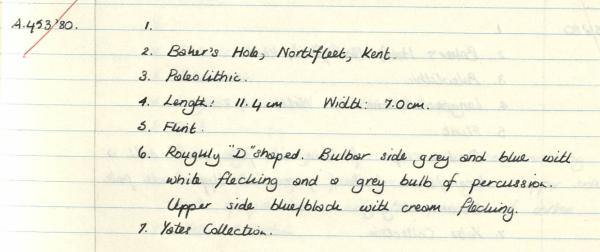 A.453'80. 1.
2. Baker's Hole, Northfleet, Kent.
3. Paleolithic.
4. Length: 11.4cm Width: 7.0cm.
5. Flint.
6. Roughly "D" shaped. Bulbar side grey and blue with
white flecking and a grey bulb of percussion.
Upper side blue/black with cream flecking.
7. Yates Collection.